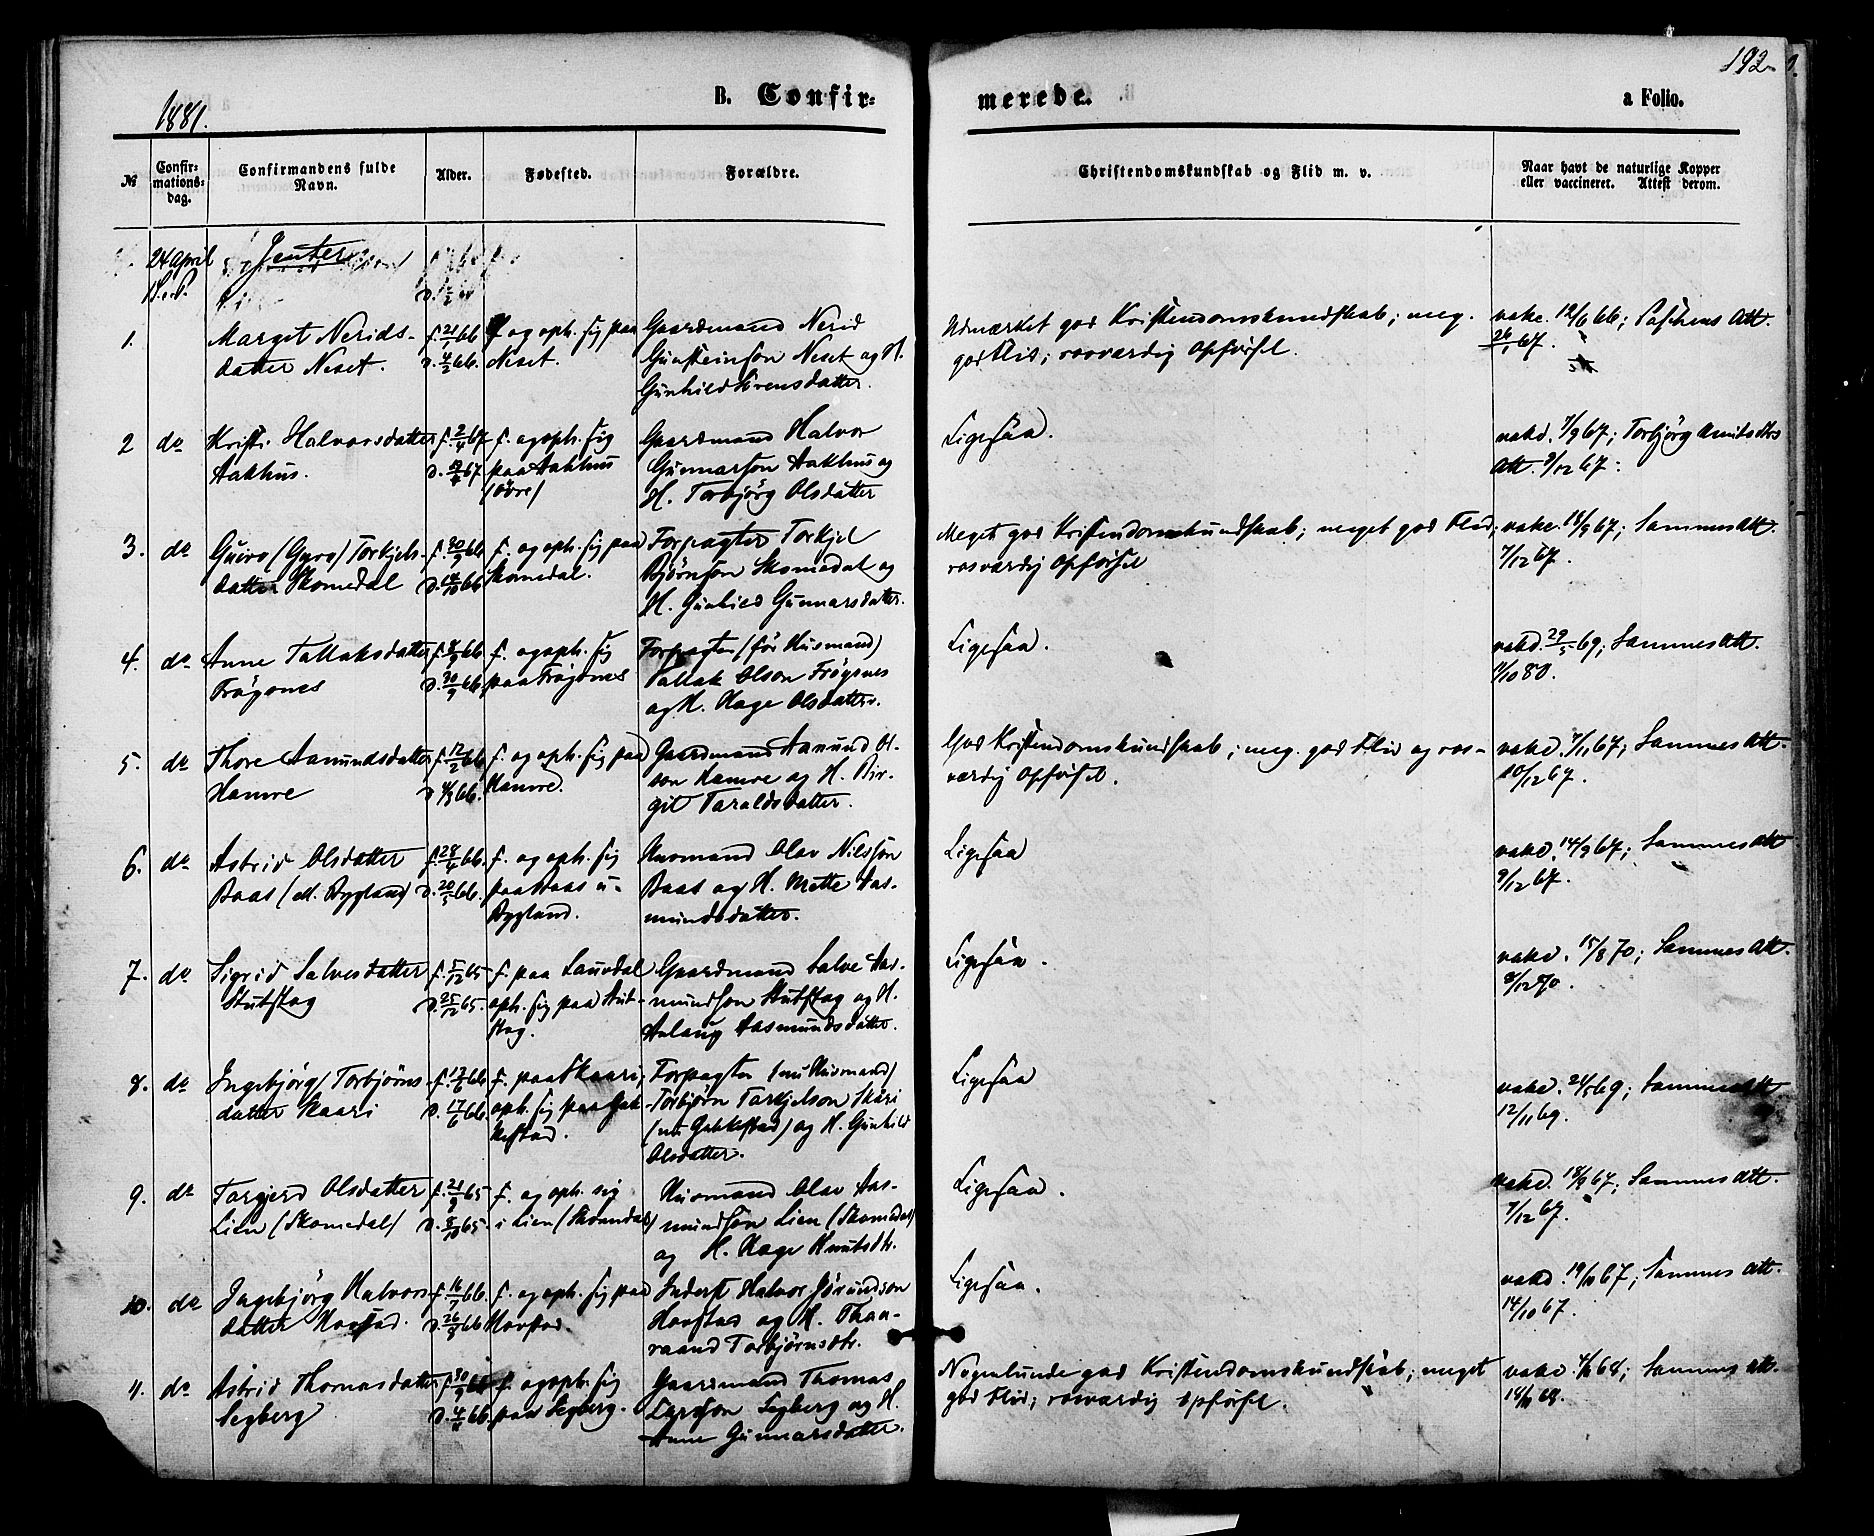 192.
1881.
B. Confir=
merede.
a Folio.
№
Confir=
mations=
dag.
Confirmandens fulde
Navn.
Alder.
Fødested.
Forældre.
Christendomskundskab og Flid m. v.
Naar havt de naturlige Kopper
eller vaccineret. Attest derom.
24 april
Jenter
1.
Marget Nerids-
datter Neset.
f. 21/1 66
d. 4/2 66.
f. og oph. sig paa
Neset.
Gaardmand Nerid
Gunsteinson Neset og H.
Gunhild Sörensdatter.
Udmærket god Kristendomskundskab; meg.
god Flid; rosværdig Opførsel.
vakc. 12/6 66; Paschens Att.
26/1 67.
2 do
Kristi Halvorsdatter
Aakhus.
f. 2/4 67
f. og oph. sig
paa Aakhus
/övre/
Gaardmand Halvor
Gunnarson Aakhus og
H. Torbjörg Olsdatter
Ligesaa.
vakc. 7/9 67; Torbjörg
Att. 9/12 67.
3. do
Guro (Gyro) Torkjels-
datter Skomedal
f. og oph. sig paa
Skomedal.
Forpagter Torkjel
Björnson Skomedal og
H. Gunhild Gunnarsdatter.
Meget god Kristendomskundskab; meget god Flid;
rosværdig Opførsel
vakc. 18/9 67; Sammes Att.
7/12 67.
4. do
Anne Tallaksdatter
Fröysnes
d. 30/9 66
f. og oph. sig
paa Fröysnes
Forpagter (før Husmand)
Tallak Olson Fröysnes
og H. Hage Olsdatter.
Ligesaa.
vakc. 29/5 69; Sammes Att.
11/10 80.
5. do
Thore Aanundsdatter
Hamre
f. 12/2 66
d. 4/3 66.
f. og oph. sig paa
Hamre.
Gaardmand Aanund Ol-
son Hamre og H. Bir-
git Taraldsdatter.
God Kristendomskundskab; meg. god Flid og ros-
værdig Opførsel.
vakc. 7/11 67; Sammes Att.
10/12 67.
6. do
Astrid Olsdatter
Baas (M. Bygland)
f. 28/4 66.
d. 20/5 66.
f. og oph. sig
paa Baas u-
Bygland.
Husmand Olav Nilsson
Baas og H. Mette Aas-
mundsdatter.
Ligesaa
vakc. 14/9 67; Sammes Att
9/12 67.
7. do
Sigrid Salvesdatter
Stutstag
f. 5/12 65
d. 25/12 65.
f. paa Lauvdal
oph. sig paa Stut-
stag.
Gaardmand Salve Aas-
mundson Stutstag og H.
Aslaug Aasmundsdatter.
Ligesaa.
vakc. 15/8 70; Sammes Att.
9/12 70.
8. do
Ingebjörg Torbjörns-
datter Skaari
d. 17/6 66.
f. paa Skaari,
oph. sig paa Gak-
kestad.
Forpagter (nu Husmand)
Torbjörn Tarkjelson Skari
(nu Gakkestad) og H. Gunhild
Olsdatter.
Ligesaa
vakc. 24/5 69; Sammes Att
12/11 69.
9. do
Targjerd Olsdatter
Lien (Skomedal)
f. 21/9 65
d. 8/10 65.
f. og oph. sig
i Lien (Skomedal)
Husmand Olav Aas-
mundson Lien (Skomedal)
og H. Hage Knutsdtr.
Ligesaa.
vakc. 18/9 67; Sammes Att.
7/12 67.
10. do
Ingebjörg Halvors-
datter Havstad.
f. 16/7 66.
d. 26/8 66
f. og oph. sig paa
Havstad.
Inderst Halvor Jörundson
Havstad og H. Thaa-
raand Torbjörnsdtr.
Ligesaa.
vakc. 19/10 67; Sammes Att.
14/10 67.
11. do
Astrid Thomasdatter
Segberg
f. og oph. sig
paa Segberg.
Gaardmand Thomas
Larsson Segberg og H.
Anne Gunnarsdatter.
Nogenlunde god Kristendomskundskab; meget
god Flid; rosværdig Opførsel.
vakc. 68; Sammes Att.